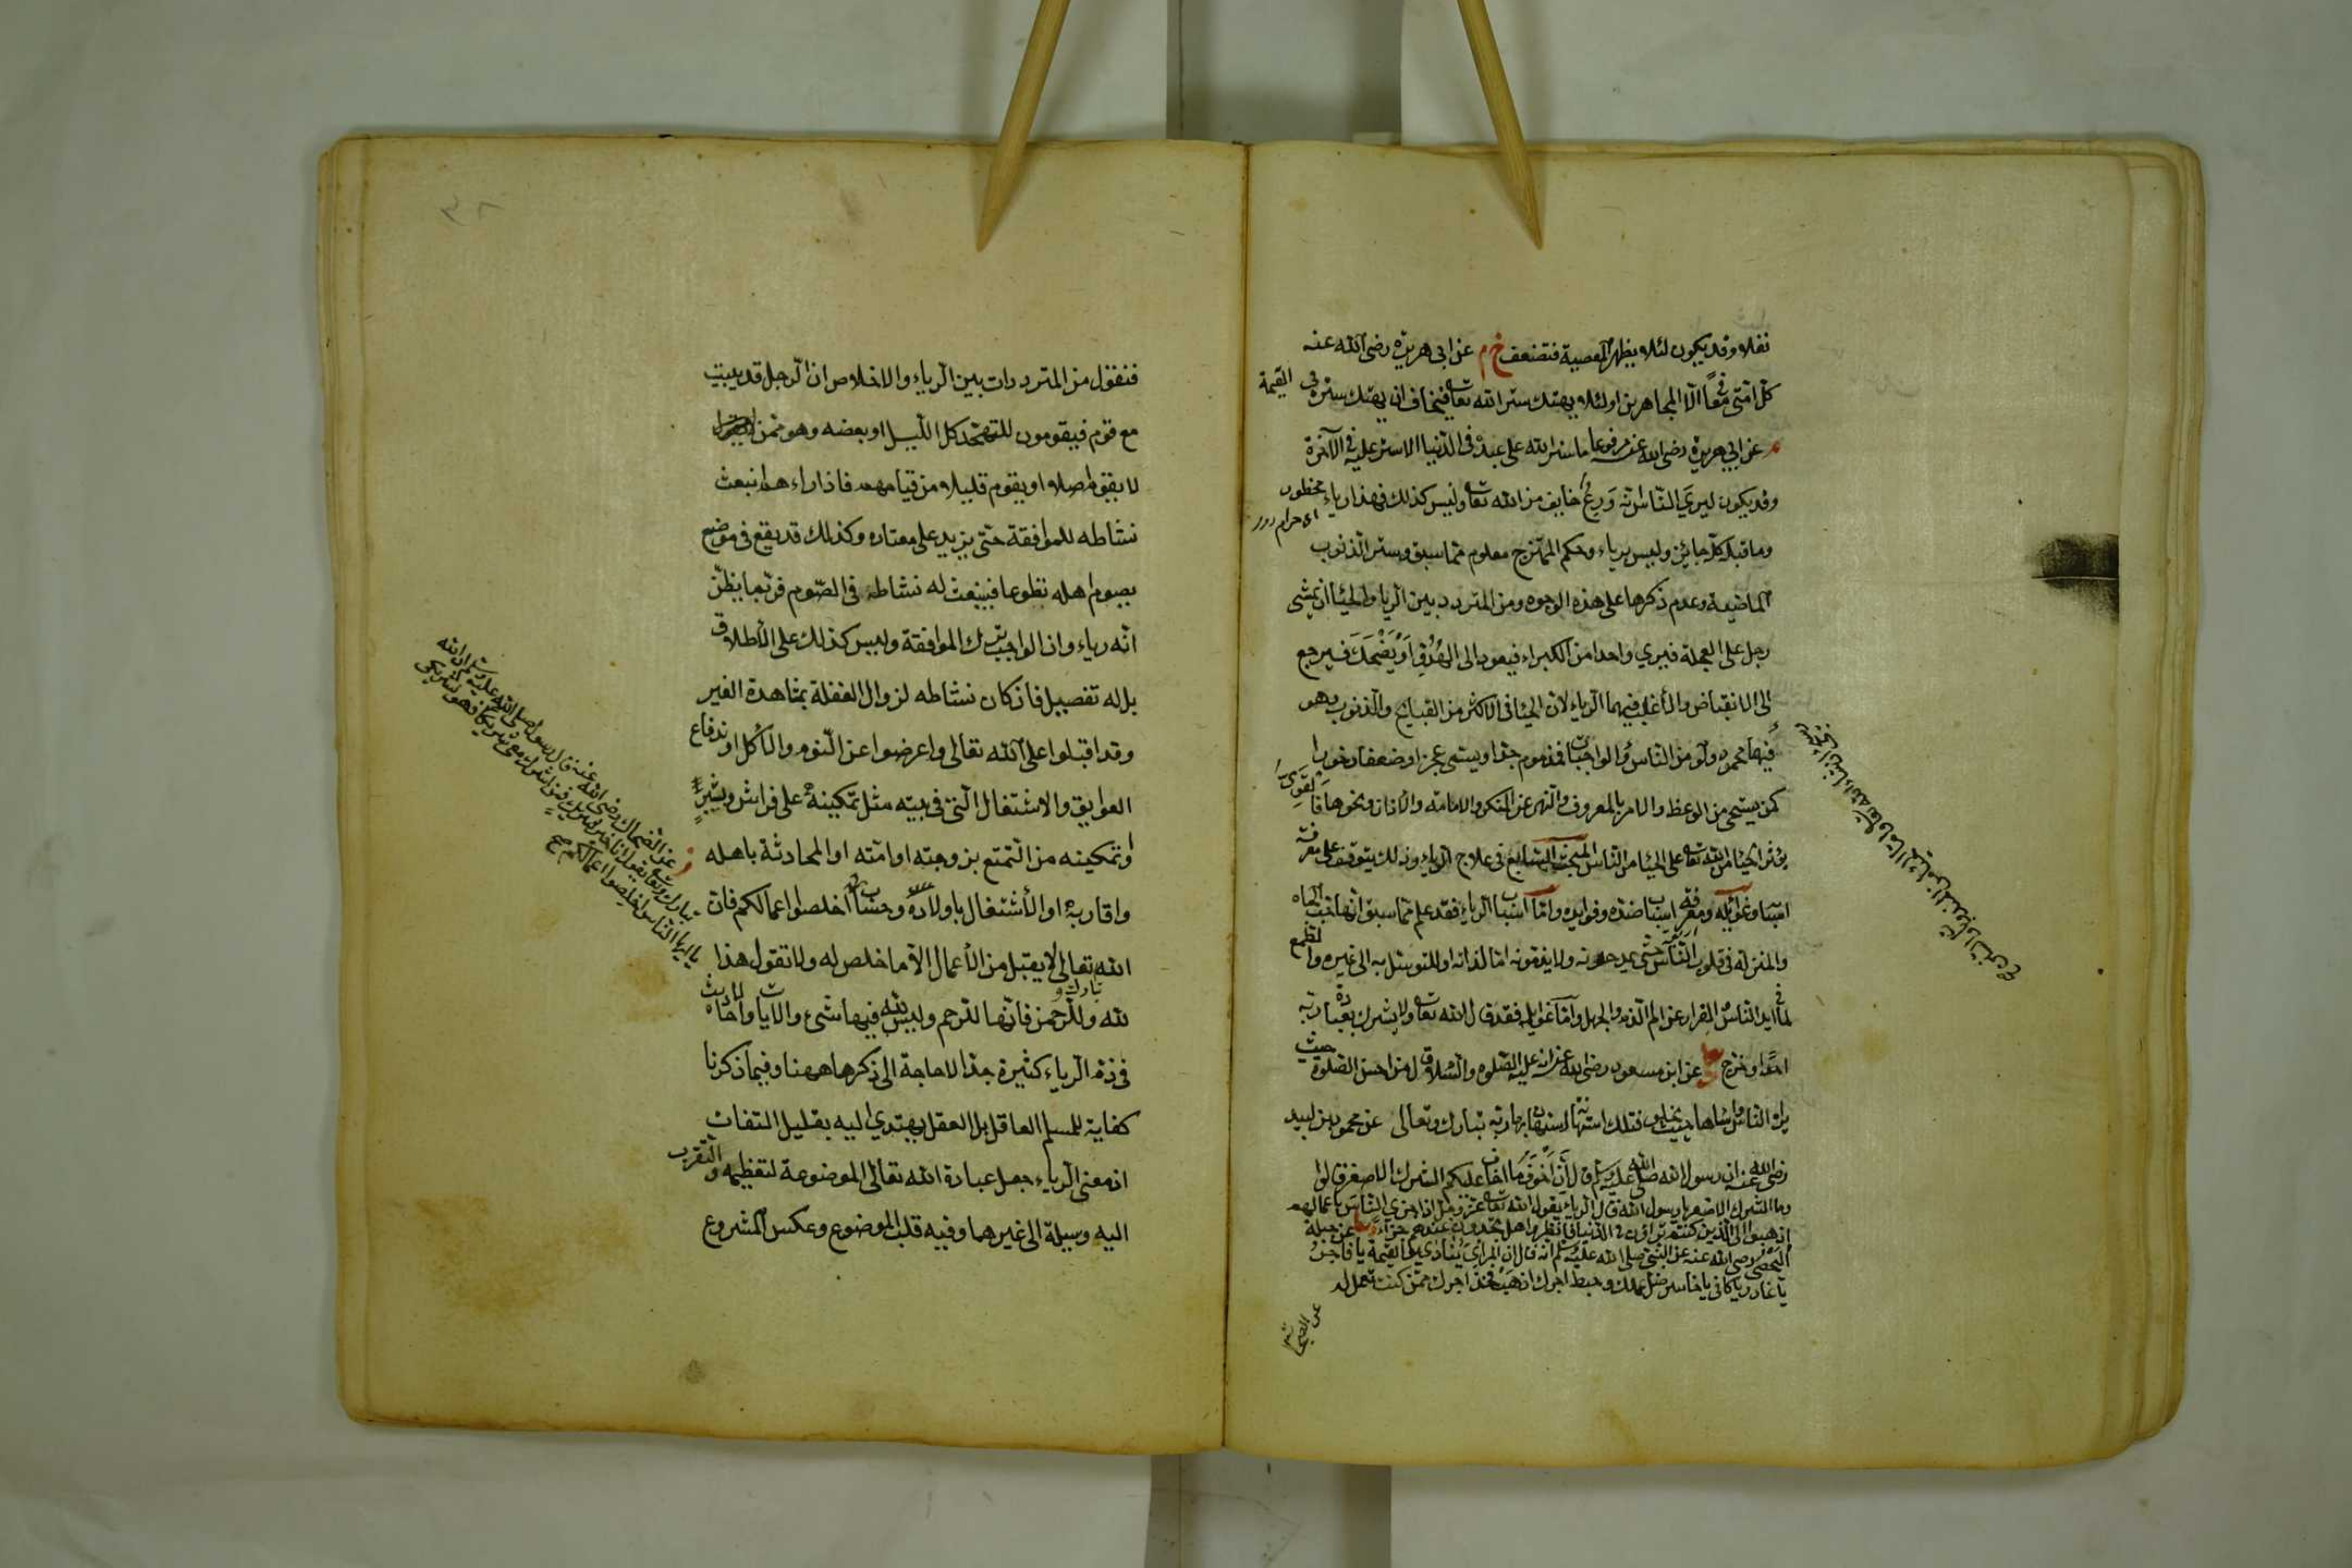 نفلا وقد يكون لئلا يظهر المعصية فتضعف خ م عن ابى هريرة رضى الله عنه
كل امتى معافى الا المجاهرين او لئلا يهتك ستر الله تعا فيخاف ان يهتك ستره فى القيمة
م عن ابى هريرة رضى الله عنه مرفوعا ما ستر الله على عبد فى الدنيا الا ستر عليه فى الآخرة
وقد يكون ليرى الناس انه ورع خايف من الله تعا وليس كذلك فهذا رياء محظور
اى حرام
وما قبله كله جائز وليس برياء وحكم الممتزج معلوم مما سبق وستر الذنوب
الماضية وعدم ذكرها على هذه الوجوه ومن المتردد بين الريا والحياان يمشى
رجل على العجلة فيرى واحدا من الكبراء فيعود الى الهدو او يضحك فيرجع
الى الانقباض والأغلب فيهما الرياء لان الحيا فى الاكثر من القبايح والذنوب وهو
فيها محمود ولو من الناس والواجبات فمذموم جدا ويسمى عجزا وضعفا وخورا
كمن يستحى من الوعظ والامر بالمعروف والنهى عن المنكر والامامة والاذان ونحوها فالقوى
يؤثر الحيا من الله تعا على الحيا من الناس المبحث السابع فى علاج الرياء وذلك يتوقف على معرفة
اسبابه وغوائله ومعرفة اسباب ضده وفوايده واما اسباب الرياء فقد علم مما سبق انها حب الجاه
والمنزلة فى قلوب الناس حتى يمدحونه ولا يذمونه اما لذاته او للتوسل به الى غيره والطمع
لما فى ايد الناس والفرار عن الم الذم والجهل واما غوايله فقد قال الله تعا ولا يشرك بعبادة ربه
احدا وخرج عن ابن مسعود رضى الله عنه انه عليه الصلوة والسلام قال من احسن الصلوة حيث
يراه الناس واساها حيث يخلو فتلك استهانة استهان بها ربه تبارك وتعالى عن محمود بن لبيد
رضى الله عنه ان رسول الله صلى الله عليه وسلم قال ان اخوف ما اخاف عليكم الشرك الاصغر قالوا
وما الشرك الاصغر يا رسول الله قال الرياء يقول الله تعا عز وجل اذا جزى الناس باعمالهم
اذهبوا الى الذين كنتم تراؤن فى الدنيا فانظروا هل تجدون عندهم جزاء عن جبلة
اليحصبى رضى الله عنه عن النبى صلى الله عليه وسلم انه قال ان المرائى ينادى يوم القيمة يا فاجر
يا غادر يا كافر يا خاسر ضل عملك وحبط اجرك اذهب فخذ اجرك ممن كنت تعمل له
عن الضحا
٣٨
فنقول من المترددات بين الرياء والاخلاص ان الرجل قد يبيت
مع قوم فيقومون للتهجد كل الليل او بعضه وهو ممن
لا يقوم اصلا او يقوم قليلا من قيامهم فاذا راءهم انبعث
نشاطه للموافقة حتى يزيد على معتاده وكذلك قد يقع فى موضع
يصوم اهله تطوعا فينبعث له نشاطه فى الصوم فربما يظن
انه رياء وان الواجب ترك الموافقة وليس كذلك على الأطلاق
بل له تفصيل فاذ كان نشاطه لزوال الغفلة بمشاهدة الغير
وقد اقبلوا على الله تعالى واعرضوا عن النوم والأكل او ندفاع
العوايق والاشتغال التى فى بيته مثل تمكينه على فراش وشير
او تمكينه من التمتع بزوجته او امته او المحادثة باهله
واقاربه او الأشتغال باولاده وحسابه اخلصوا اعمالكم فان
الله تعالى لا يقبل من الأعمال الا ما خلص له ولا تقول هذا
تبارك و
لله وللرحم فانها للرحم وليس لله فيها شىء والآيات والاحاديث
فى ذم الرياء كثيرة جدا لا حاجة الى ذكرها ههنا وفيما ذكرنا
كفاية للمسلم العاقل بل العقل يهتدى اليه بقليل التفات
اذ معنى الرياء جعل عبادة الله تعالى الموضوعة لتعظيمه والتقرب
اليه وسيلة الى غيرهما وفيه قلب الموضوع وعكس المشروع
عن الضحاك رضى الله عنه قال رسول الله صلى الله عليه وسلم ان الله
تبارك وتعا يقول انا خير شريك فمن اشرك معى شريكا فهو لشريكى
يا ايها الناس اخلصوا اعمالكم صح